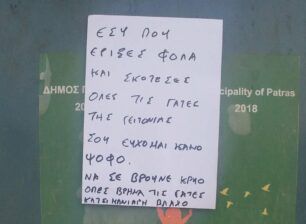 ΕΣΥ ΠΟΥ
ΕΡΙΞΕΣ ΦΟΛΑ
ΚΑΙ ΣΚΟΤΩΣΕΣ
ΔΗΜΟΣ cipality of Patras
ΟΛΕΣ ΤΙΣ ΓΑΤΕΣ
20 2018
ΤΗΣ ΓΕΙΤΟΝΙΑΣ
ΣΟΥ ΕΥΧΟΜΑΙ ΚΑΚΟ
ΨΟΦΟ.
ΝΑ ΣΕ ΒΡΟΥΝΕ ΚΡΥΟ
ΟΠΩΣ ΒΡΗΚΑ ΤΙΣ ΓΑΤΕΣ
ΒΛΑΧΟ